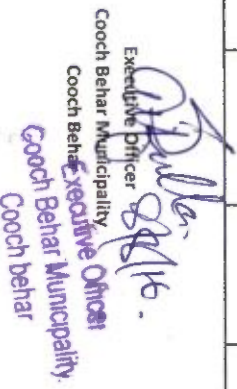 Executive Officer
Cooch Behar Municipality
Cooch Behar
Executive Officer
Cooch Behar Municipality.
Cooch behar